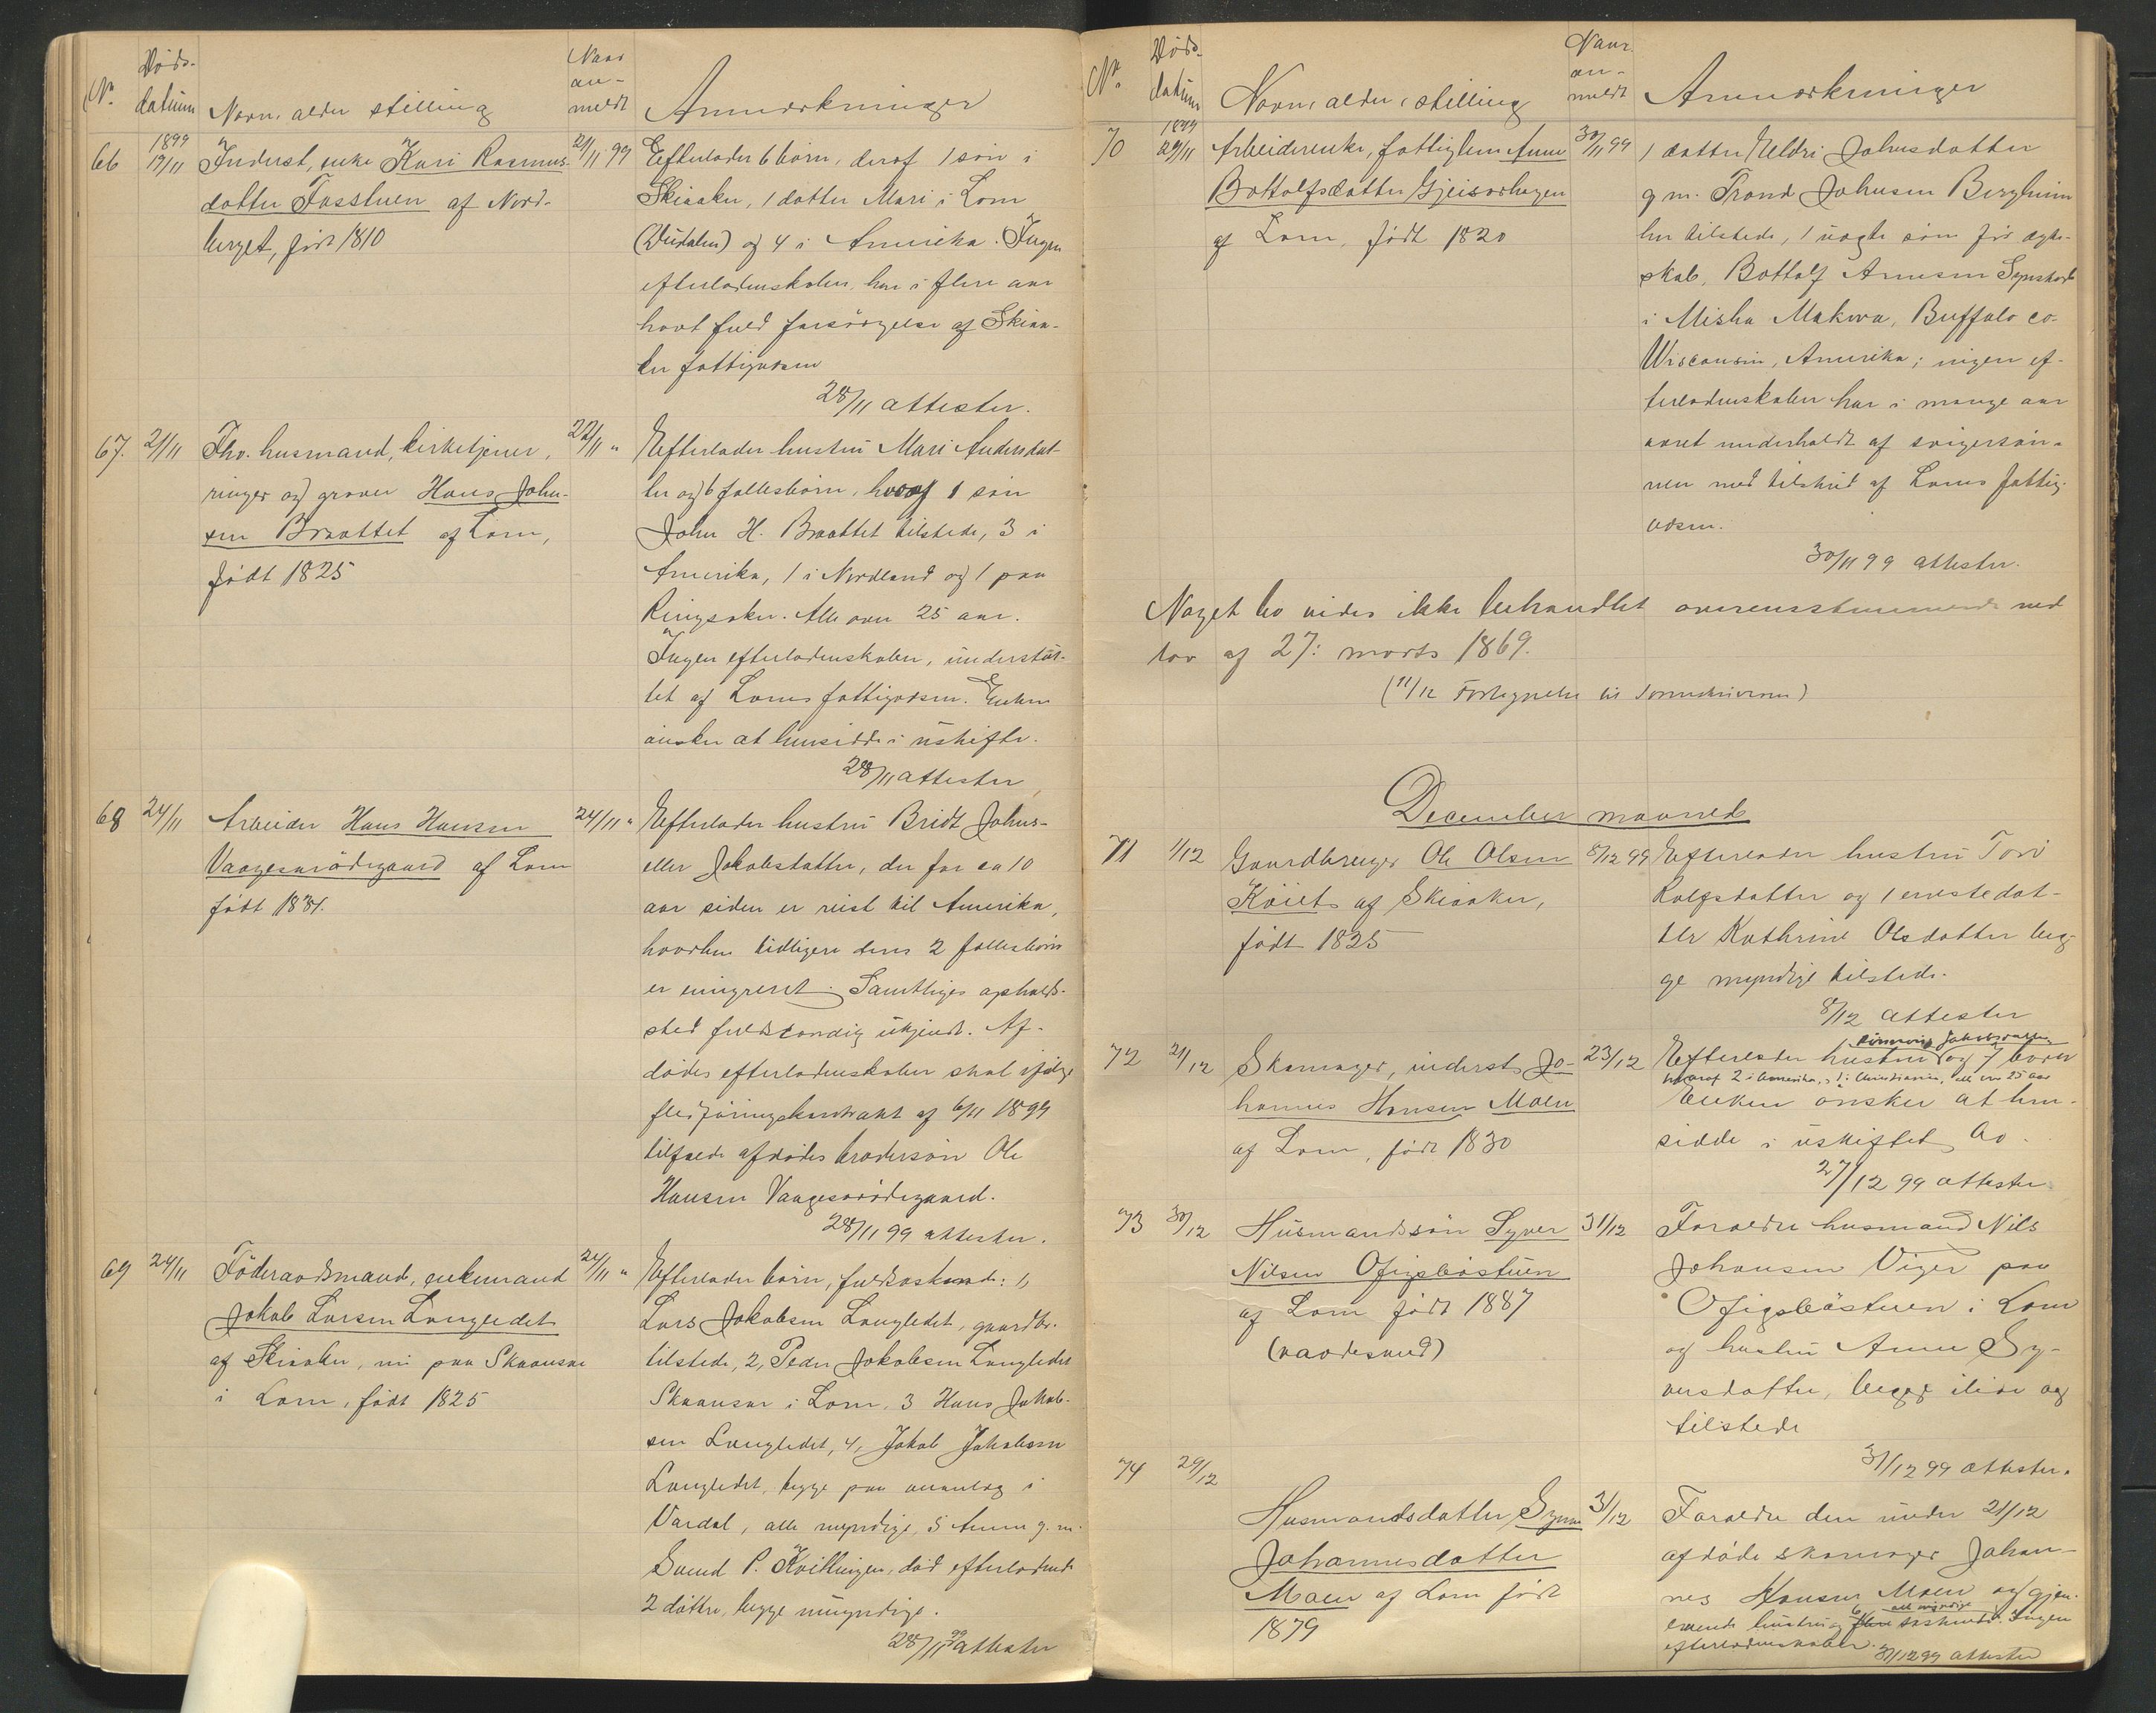 No.
Døds-
datum
Navn, alder stilling
Naar
an-
meldt
Anmærkninger
66
1899
19/11
Inderst, enke Kari Rasmus-
datter Fosstuen af Nord-
berget, født 1810
21/11 99
Efterlader 6 børn, deraf 1 søn i
Skiaaker, 1 datter Mari i Lom
og 4 i Amerika. Ingen
efterladenskaber, har i flere aar
havt fuld forsørgelse af Skiaa-
ker fattigvæsen
28/11 attester.
67.
21/11
Fhv. husmand, kirketjener,
ringer og graver Hans John-
sen Braattet af Lom,
født 1825
22/11 "
Efterlader hustru Mari Andersdat-
ter og 6 fællesbørn, hvoraf 1 søn
John H. Braattet tilstede, 3 i
Amerika, 1 i Nordland og 1 paa
Ringsaker. Alle over 25 aar.
Ingen efterladenskaber, understøt-
tet af Loms fattigvæsen. Enken
ønsker at hensidde i uskifte.
28/11 attester
68
24/11
Arbeider Hans Hansen
Vaagesarødegaard af Lom
født
24/11 "
Efterlader hustru Bridt Johns-
eller Jakobsdatter, der for ca 10
aar siden er reist til Amerika,
hvorhen tidligere deres 2 fællesbørn
er emigreret. Samtliges opholds-
sted fuldstændig ukjendt. Af-
dødes efterladenskaber skal ifølge
flesføringskontrakt af 6/11 1899
tilfalde afdødes brodersøn Ole
Hansen Vaagesarødegaard.
28/11 99 attester.
69
24/11
Føderaadsmand, enkemand
Jakob Larsen Langledet
af Skiaaker, nu paa Skaansar
i Lom, født 1825
24/11 "
Efterlader børn, fuldsøskende: 1,
Lars Jakobsen Langledet, gaardbr.
tilstede, 2, Peder Jakobsen Langledet
Skaansar i Lom, 3 Hans Jakob-
sen Langledet, 4, Jakob Jakobsen
Langledet, begge paa
i
Vardal, alle myndige, 5 Anne g. m.
Svend P. Kvitingen, død efterladende
2 døttre, begge umyndige.
28/11 99 attester
No.
Døds-
datum
Navn, alder, stilling
Naar
an-
meldt
Anmærkninger
70
1899
29/11
Arbeiderenke, fattiglem Anne
Bottolfsdatter Gjeisarhagen
af Lom, født 1820
30/11 99
1 datter Eldri Johnsdatter
g m. Trond Johnsen Bergheim
her tilstede, 1 uægte søn før ægte-
skab, Bottolf Arnesen
i Misha Mokwa, Buffalo co-
Wisconsin, Amerika; ingen ef-
terladenskaber har i mange aar
været underholdt af svigersøn-
nen med tilskud af Loms fattig-
væsen.
30/11 99 attester.
Noget bo vides ikke behandlet overensstemmende med
lov af 27: marts 1869.
(11/12 Fortegnelse til Sorenskriveren)
December maaned
71
1/12
Gaardbruger Ole Olsen
Kóiet af Skiaaker,
født 1825
8/12 99
Efterlader hustru Tori
Rolfsdatter og 1 eneste dat-
ter Kathrine Olsdatter beg-
ge myndige tilstede.
8/12 attester
72
21/12
Skomager, inderst Jo-
hannes Hansen Moen
af Lom, født 1830
23/12
Rønnaug Jakobsdatter
Efterlader hustru og 7 børn
hvoraf 2 i Amerika, 1 i Christiania, alle over 25 aar
Enken ønsker at hen-
sidde i uskiftet bo.
27/12 99 attester
73
30/12
Husmandssøn Syver
Nilsen Ofigsbøstuen
af Lom født 1887
(vaadeskud)
31/12
Forældre husmand Nils
Johansen Viger paa
Ofigsbøstuen i Lom
og hustru Anne Sy-
versdatter, begge ilive og
tilstede
31/12 99 attester.
74
29/12
Husmandsdatter Synnø
Johannesdatter
Moen af Lom født
1879
31/12
Forældre den under 21/12
afdøde skomager Johan-
nes Hansen Moen og gjen-
levende hustru og 6 alle myndige søskende. Ingen
efterladenskaber. 31/12 99 attester